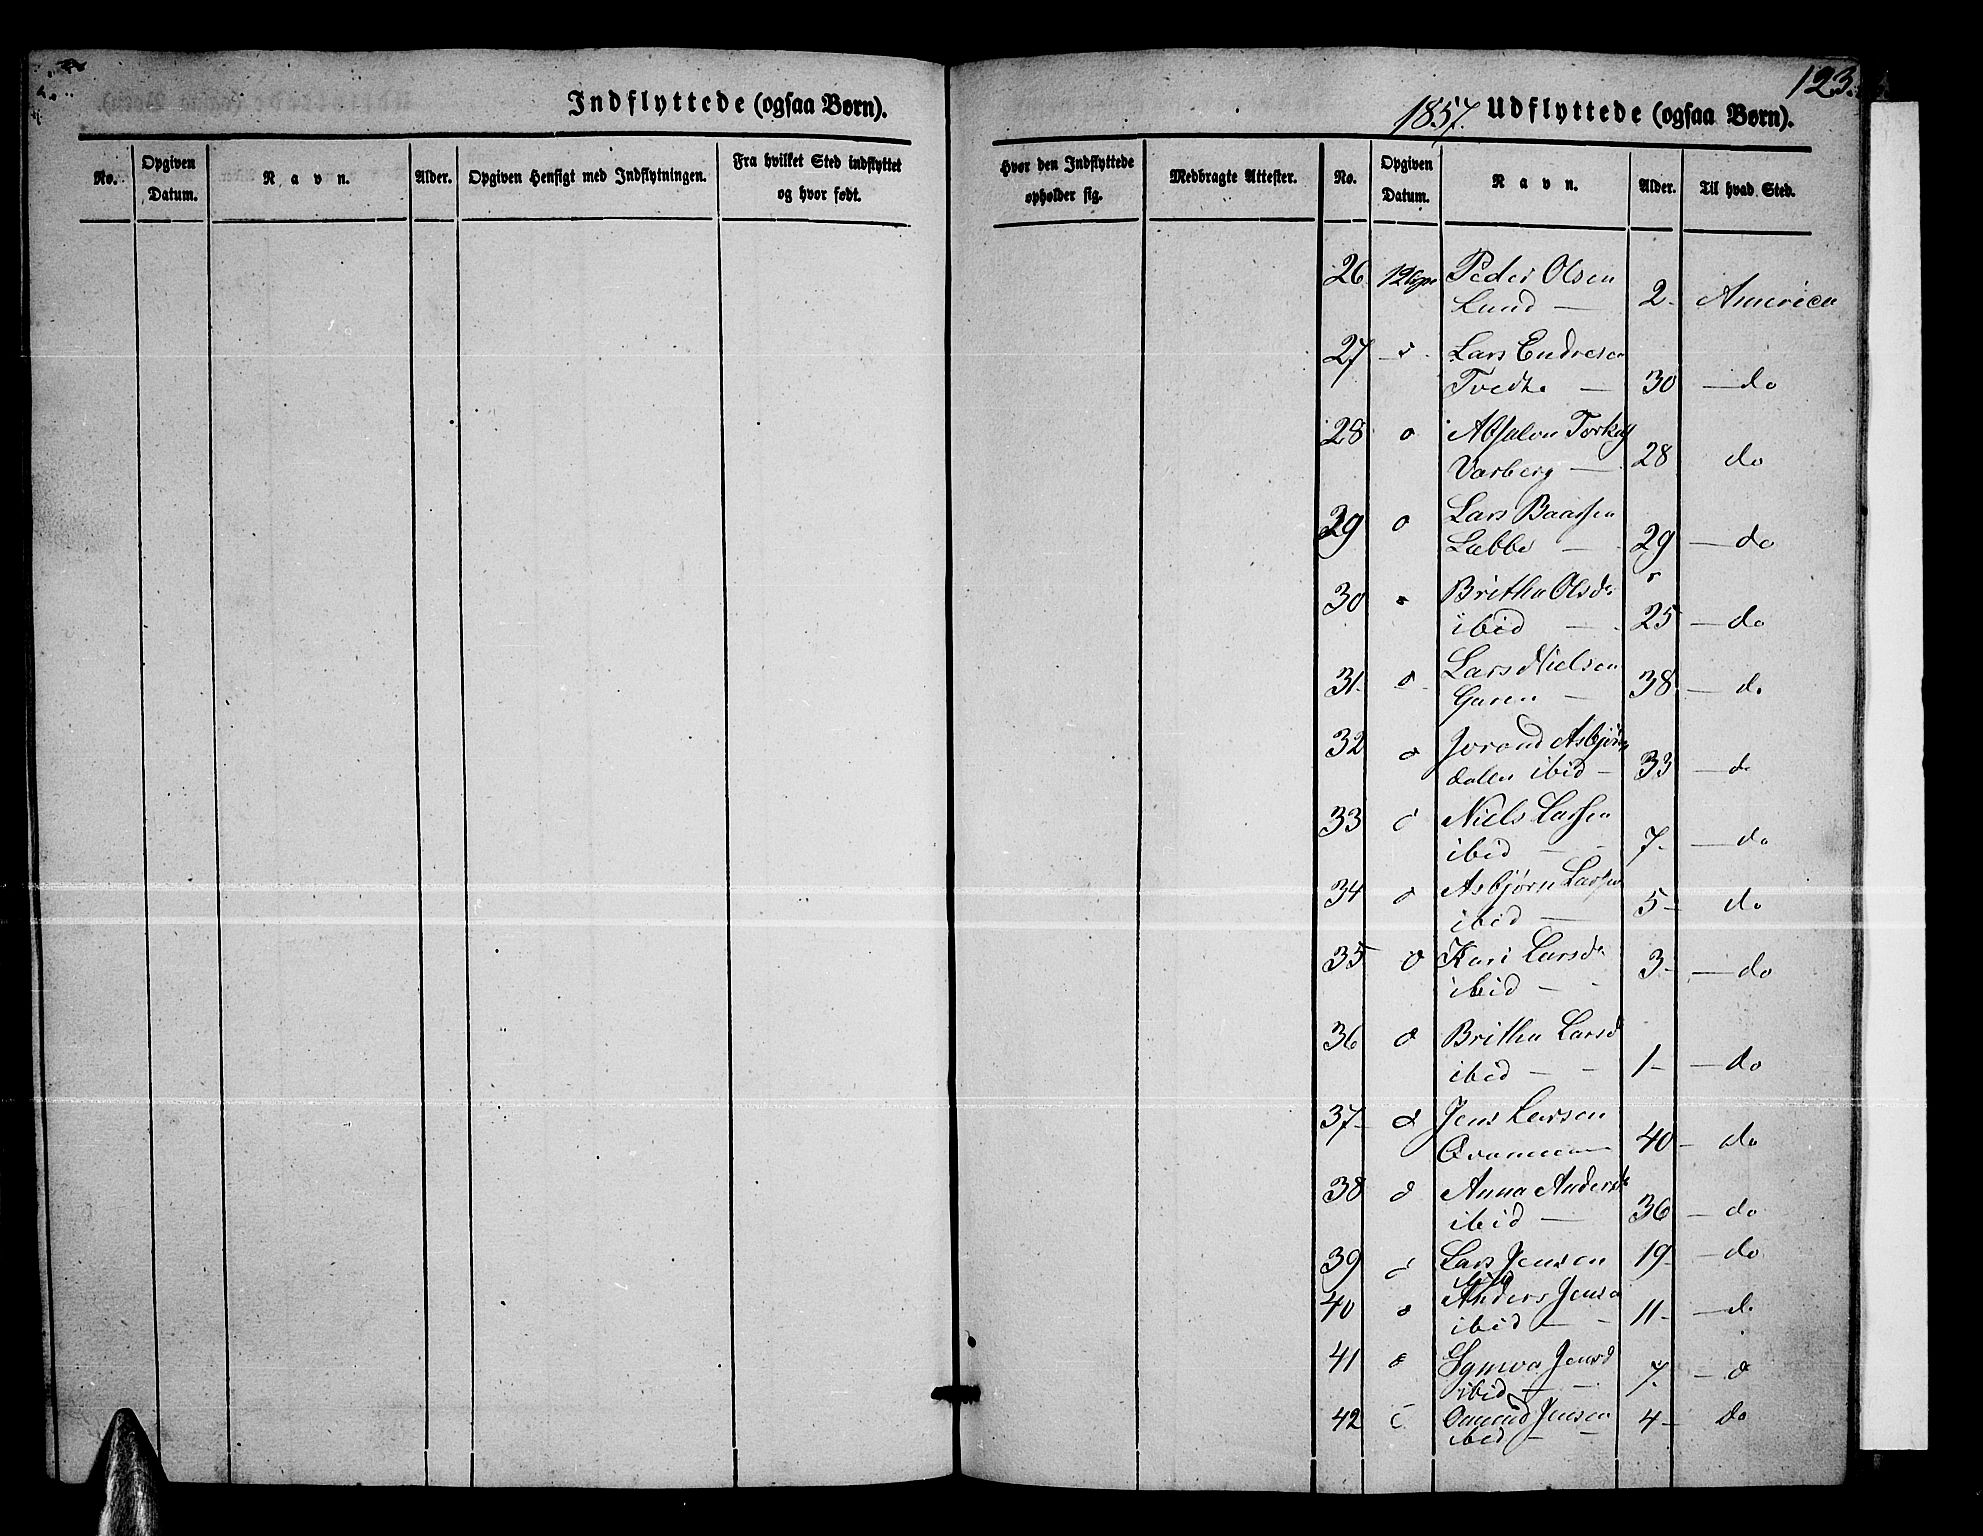 Indflyttede (ogsaa Børn).
No.
Opgiven Datum.
Navn.
Alder.
Opgiven Hensigt med Indflytningen.
Fra hvilket Sted indflyttet og hvor født.
123.
1857. Udflyttede (ogsaa Børn).
Hvor den Indflyttede opholder sig.
Medbragte Attester.
No.
Opgiven Datum.
Navn.
Alder.
Til hvad Sted.
26 Peder Olsen
Lund — 2 - America
27 Lars Endresen
Tvedte — 30 — do
28 Absalon
Varberg — 28 do
29 Lars Baarsen
Læbbe — 29 — do
30 Britha Olsdr
ibid — 25 — do
31 - Lars Nielsen
Garen — 38 — do
32 Jorand Asbjørns
datter ibid — 33 — do
33 Niels Larsen
ibid — 7 - — do
34 Asbjørn Larsen
ibid — 5 — do
35 Kari Larsdr
ibid — 3 - — do
36 Britha Larsd
ibid — 1 - — do
37 - Jens Larsen
40 - do
38 Anna Andersdr
ibid — 36 — do
39 Lars Jensen 19 - — do
ibid
40 Anders Jensen
ibid — 11 - — do
41 Synva Jensd
ibid — 7. — d
42 Omund Jensen 4 - do
ibid —